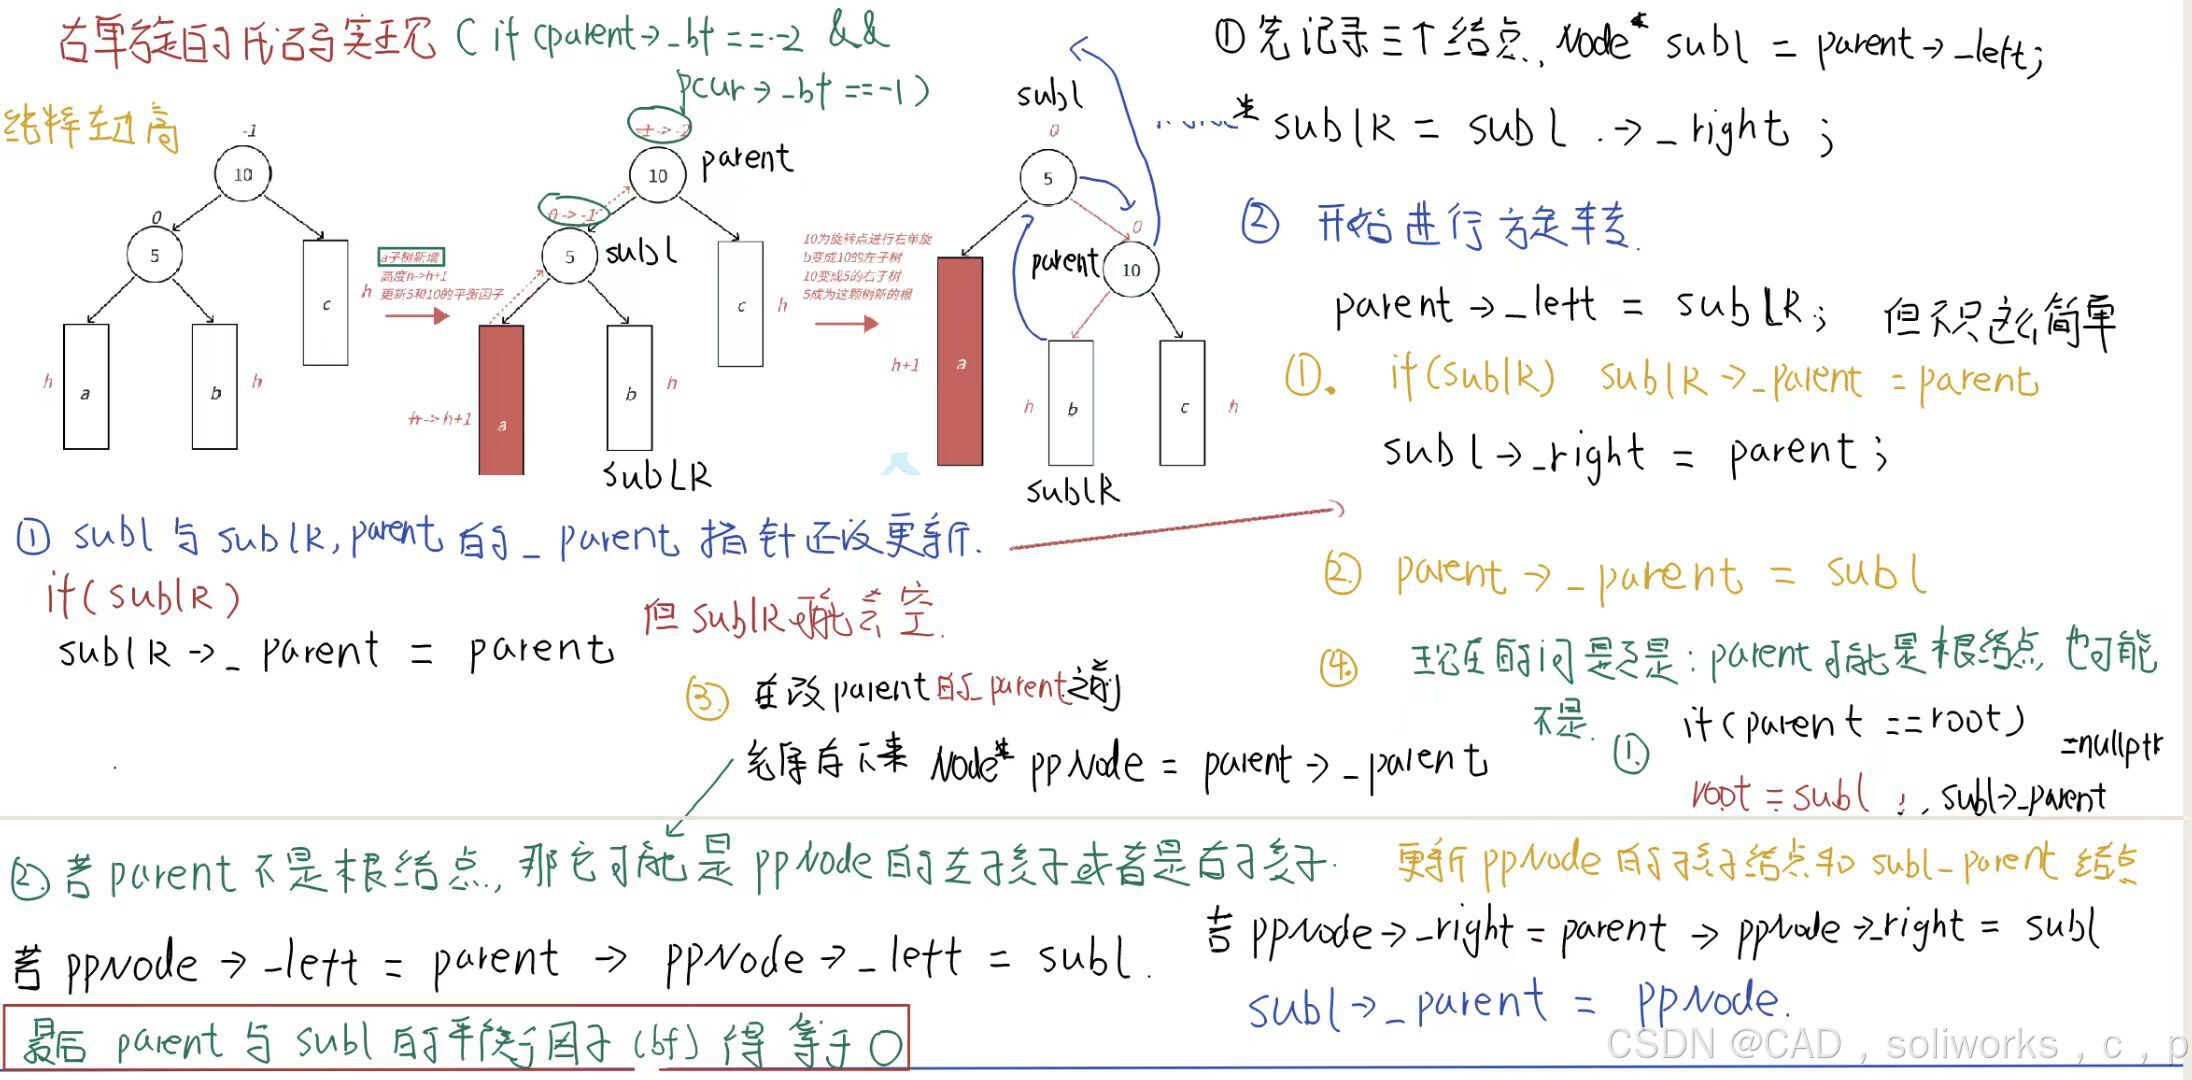 右单旋的代码实现 ( if (parent->_bf == -2 &&
pcur->_bf == -1)
纯粹左边高
-1
10
0
5
h
a
b
h
c
h
a子树新增
高度h->h+1
更新5和10的平衡因子
-1->-2
10
parent
0->-1
5
subl
c
h
h->h+1
a
b
h
subLR
10为旋转点进行右单旋
b变成10的左子树
10变成5的右子树
5成为这颗树新的根
subl
0
5
0
parent
10
h+1
a
h
b
c
h
sublR
① 先记录三个结点, Node* subl = parent->_left;
* sublR = subl ->_right ;
② 开始进行旋转.
parent->_left = subLR; 但不只这么简单
①. if(sublR) sublR->_parent = parent
subl->_right = parent;
① subl与sublR,parent的_parent指针还没更新.
if(sublR)
sublR->_parent = parent
但sublR可能会空.
② parent->_parent = subl
③ 在改parent的_parent之前
先保存下来 Node* ppNode = parent->_parent
④. 现在的问题是:parent可能是根结点,也可能
不是.
① if(parent == root)
root = subl ; , subl->_parent
=nullptr
② 若parent不是根结点, 那它可能是ppNode的左孩子或者是右孩子.
更新ppNode的孩子结点和subl_parent结点
若ppNode->_left = parent -> ppNode->_left = subl.
若ppNode->_right = parent -> ppNode->_right = subl
subl->_parent = ppNode.
最后 parent 与 subl 的平衡因子(bf)得等于0
CSDN @CAD，soliworks，c，p